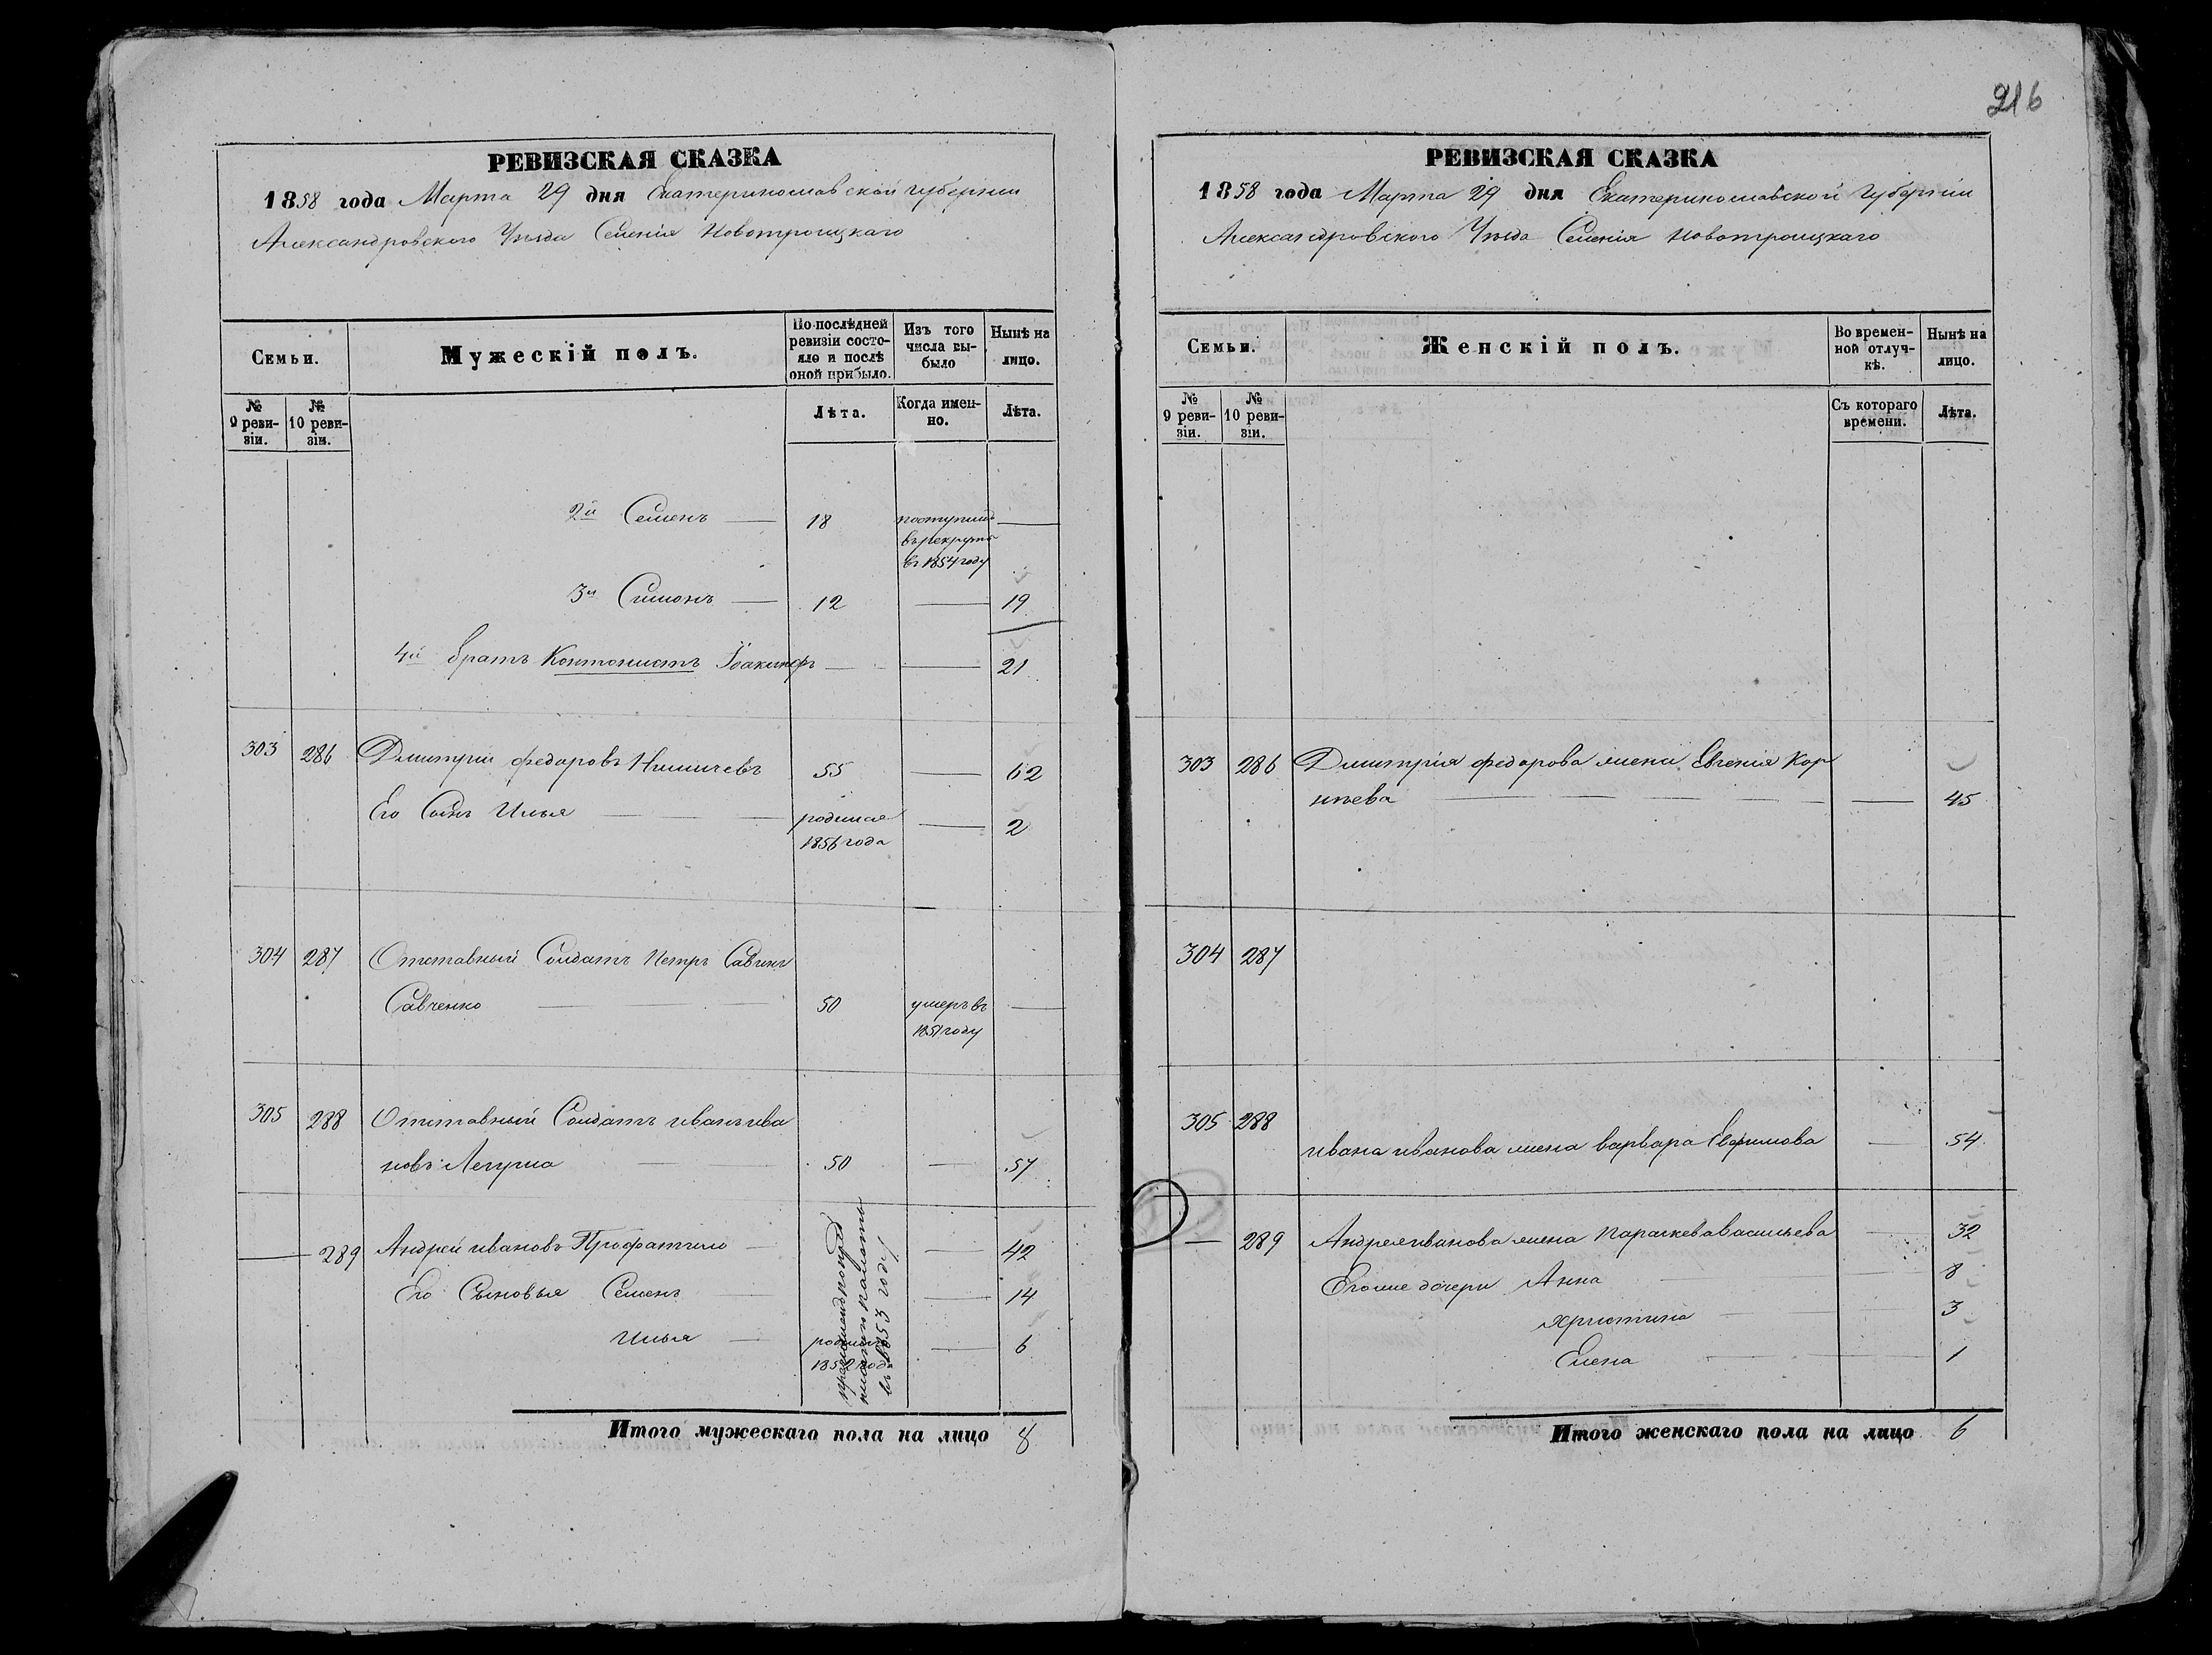 216
РЕВИЗСКАЯ СКАЗКА
1858 года Марта 29 дня Екатеринославской губернии
Александровского Уѣзда Селенія Новотроицкаго
Семьи.
Мужескій полъ.
По послѣдней ревизіи состояло и послѣ оной прибыло.
Изъ того числа выбыло
Нынѣ на лицо.
№ 9 ревизіи.
№ 10 ревизіи.
Лѣта.
Когда именно.
Лѣта.
2й Семенъ — 18 поступилъ —
въ рекруты
въ 1854 году
3й Симонъ — 12 — 19
4й братъ Контонистъ Іоакимфъ — — 21
303 286 Дмитрій федоровъ 55 — 62
Его Сынъ Илья — родился — 2
1856 года
304 287 Отставный Солдатъ Петръ Савинъ
Савченко — 50 умеръ въ —
1851 году
305 288 Отставный Солдатъ иванъ ива
новъ — 50 — 57
— 289 Андрей ивановъ — — 42
Его Сыновья Семенъ — — 14
Илья — родился — 6
въ 1853 году
Итого мужескаго пола на лицо 8
РЕВИЗСКАЯ СКАЗКА
1858 года Марта 29 дня Екатеринославской Губерніи
Александровского Уѣзда Селенія Новотроицкаго
Семьи.
Женскій полъ.
Во временной отлучкѣ.
Нынѣ на лицо.
№ 9 ревизіи.
№ 10 ревизіи.
Съ котораго времени.
Лѣта.
303 286 Дмитрія федорова жена Евгенія Кор
нѣева — — 45
304 287
305 288
ивана иванова жена варвара Евфимова — 54
— 289 Андрея иванова жена Параскева васильева — 32
Его же дочери Анна — 8
христина — 3
Елена — 1
Итого женскаго пола на лицо 6